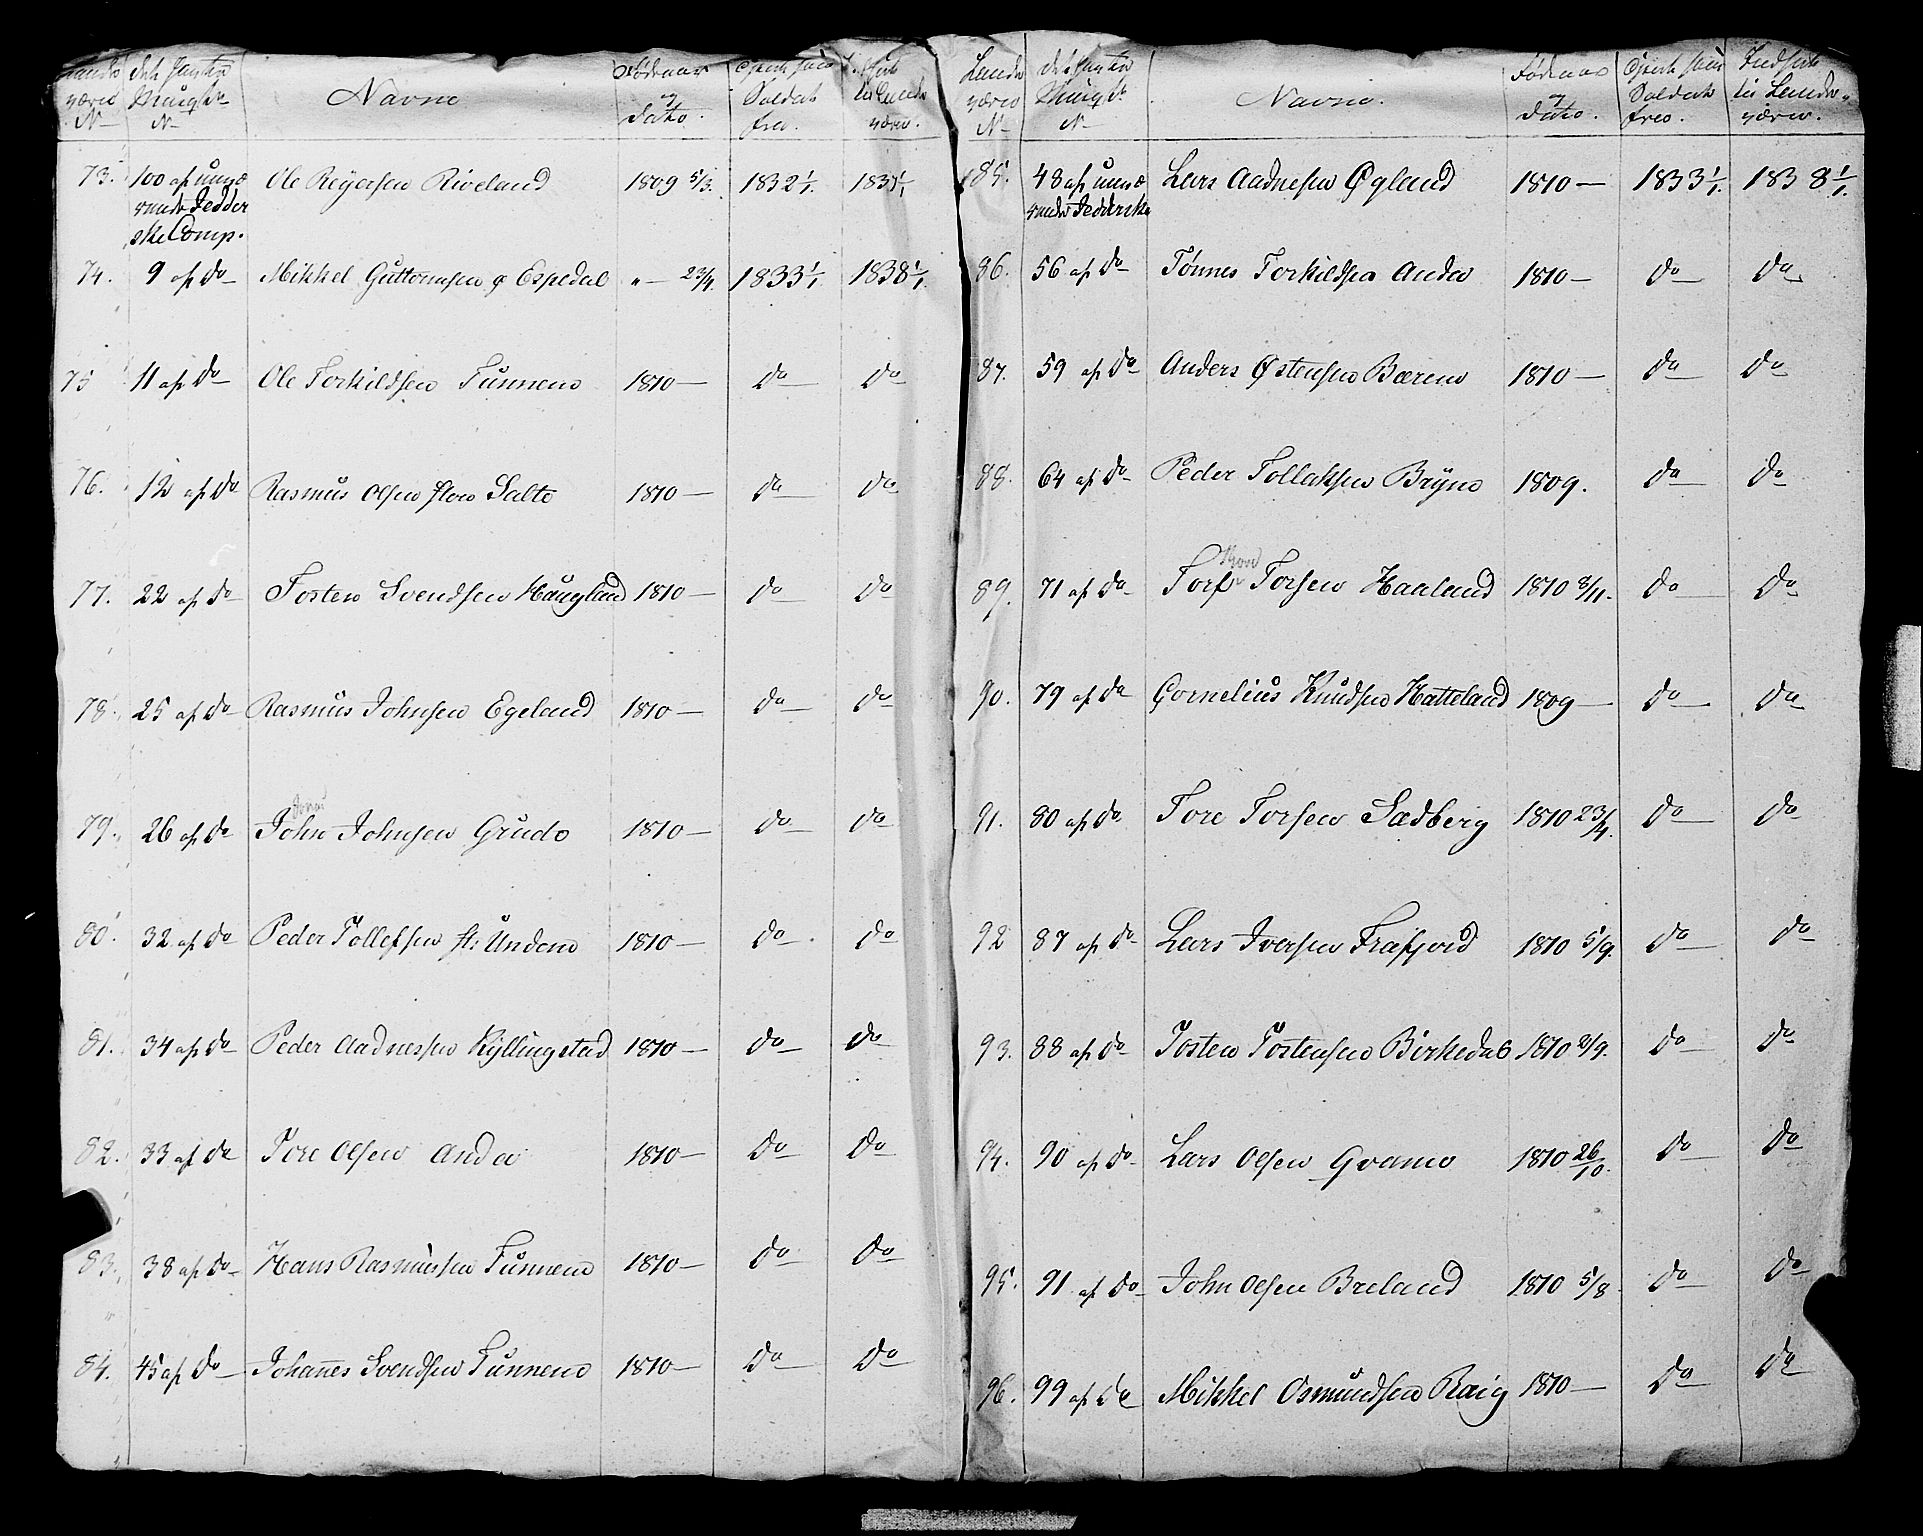 Navne
Fødeaar
og
Dato.
Soldat
værn.
N
73. 100 af Ole Reÿersen Riveland 1809 5/3. 1832 1/1.
ske Comp.
74. 9 af do Mikkel Guttormsen Espedal " — 23/4. 1833 1/1 1838 1/1.
75 11 af do Ole Torkildsen Tunnem 1810 — do do
76. 12 af do Rasmus Olsen Salte 1810 — do do
77. 22 af do Tosten Svendsen Haugland 1810 — do do
78. 25 af do Rasmus Johnsen Egeland 1810 — do do
79. 26 af do John Johnsen Grude 1810 — do do
80. 32 af do Peder Tollefsen Undem 1810 — do do
81. 34 af do Peder Aadnessen Kÿllingstad 1810 — do do
82. 33 af do Tore Olsen Anda 1810 — do do
83. 38 af do Hans Rasmussen Tunnem 1810 — do do
84. 45 af do Johannes Svendsen Tunnem 1810 — do do
Navne.
Fødeaar
og
Dato.
Soldat
værn.
N
85. 48 af Lars Aadnesen Øgland 1810 — 1833 1/1. 1838 1/1.
86. 56 af do Tønnes Torkildsen Anda 1810 — do do
87. 59 af do Anders Østensen Bærem 1810 — do do
88. 64 af do Peder Tollaksen Brÿne 1809. do do
89. 71 af do Torsen Haaland 1810 8/11. do do
90. 79 af do Cornelius Knudsen Hatteland 1809 — do do
91. 80 af do Tore Torsen Sædberg 1810 23/4. do do
92 87 af do Lars Iversen Frafjord 1810 5/9. do do
93. 88 af do Tosten Tostensen Birkedal 1810 2/9. do do
94. 90 af do Lars Olsen 1810 26/10. do do
95. 91 af do John Olsen Breland 1810 5/8 do do
96. 99 af do Mikkel Osmundsen Raig 1810 — do do